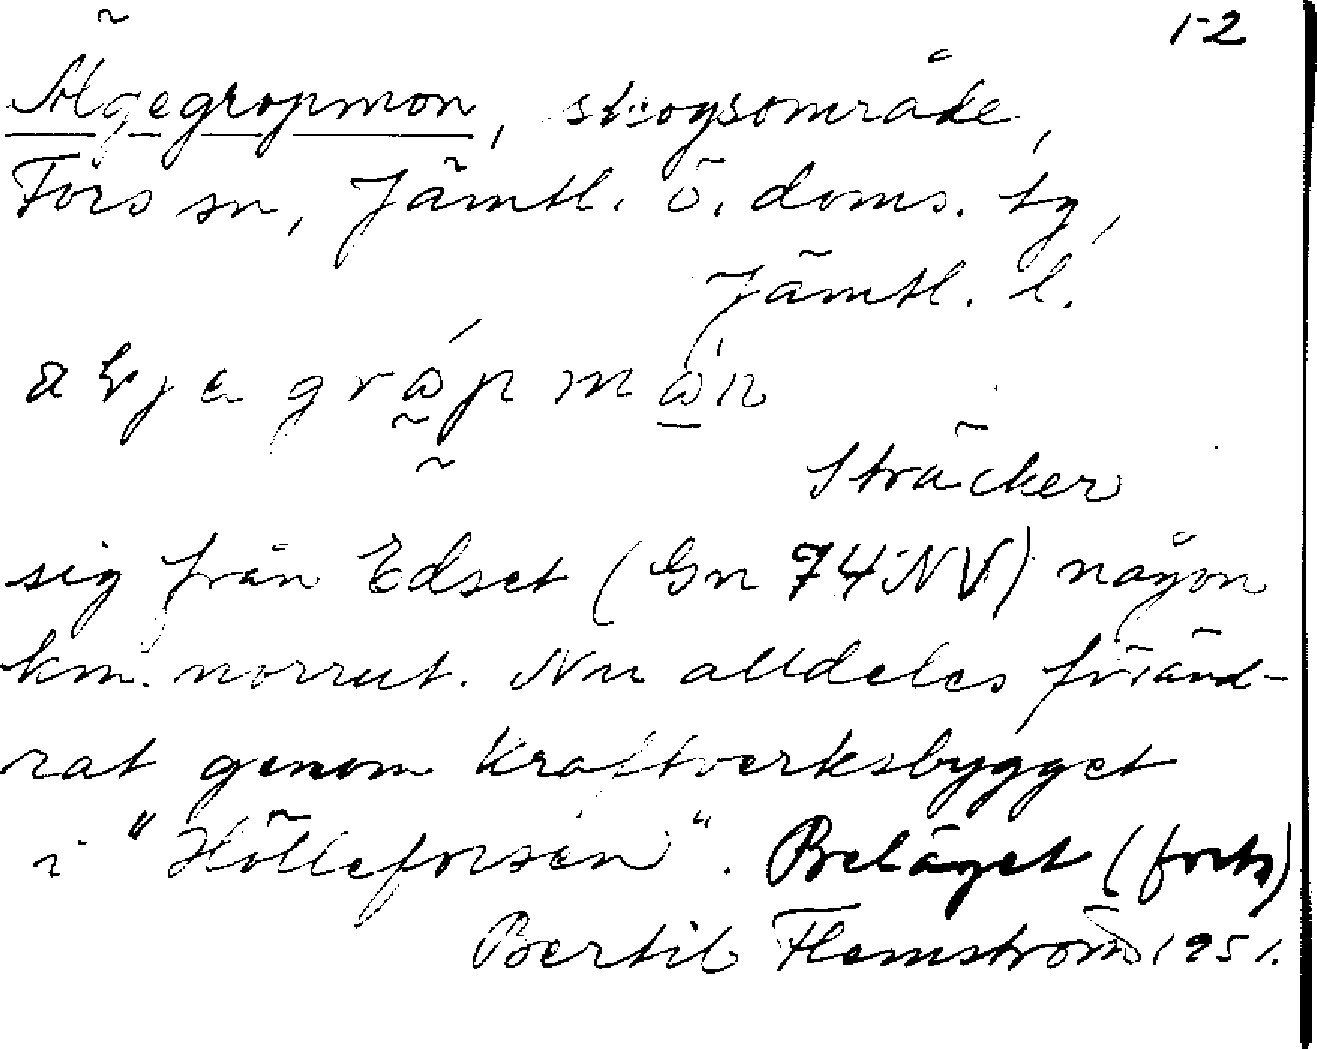 1-2
Älgegropmon, skogsområde,
Fors sn, Jämtl. ö. doms. tg,
Jämtl. l.
Sträcker
sig från Edset (Gn 74 NV) någon
km. norrut. Nu alldeles föränd-
rat genom kraftverksbygget
i "Hölleforsen". Beläget (forts)
Bertil Flemström 1951.